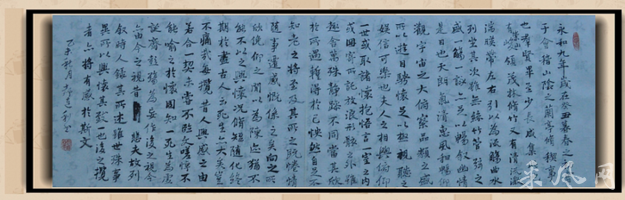 永和九年歲在癸丑暮春之初會
于會稽山陰之蘭亭脩禊事
也群賢畢至少長咸集此地有
崇山峻領茂林脩竹又有清流激
湍暎帶左右引以為流觴曲水
列坐其次雖無絲竹管弦之
盛一觴一詠亦足以暢敘幽情
是日也天朗氣清惠風和暢仰
觀宇宙之大俯察品類之盛
所以遊目騁懷足以極視聽之
娛信可樂也夫人之相與俯仰
一世或取諸懷抱悟言一室之內
或因寄所託放浪形骸之外雖
趣舍萬殊靜躁不同當其欣
於所遇暫得於己快然自足不
知老之將至及其所之既惓情
隨事遷感慨係之矣向之所
欣俛仰之閒以為陳迹猶不
能不以之興懷況脩短隨化終
期於盡古人云死生亦大矣豈
不痛哉每攬昔人興感之由
若合一契未嘗不臨文嗟悼不
能喻之於懷固知一死生為虛
誕齊彭殤為妄作後之視今
亦由今之視昔悲夫故列
敘時人錄其所述雖世殊事
異所以興懷其致一也後之攬
者亦將有感於斯文
采风网